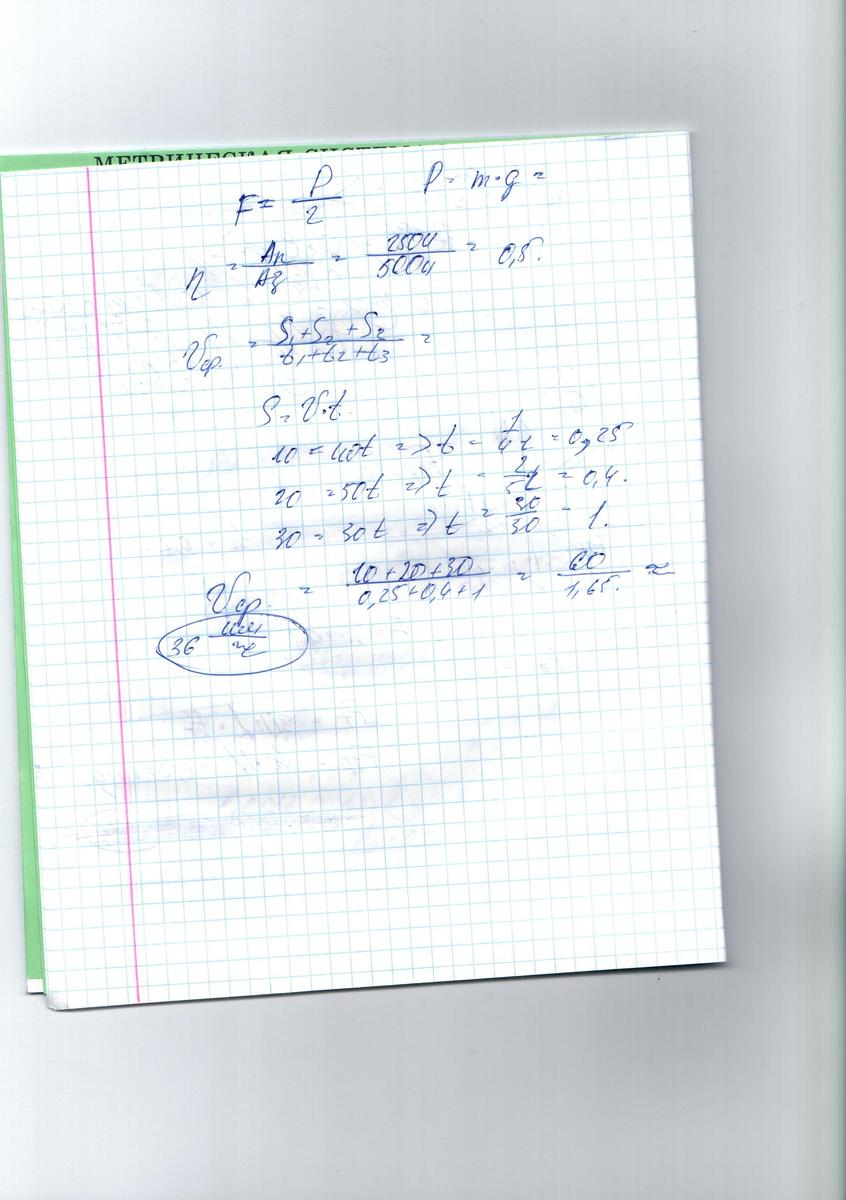 МЕТРИЧЕСКАЯ СИСТЕМА
F = P/2 P = m·g =
η = Aп/Aз = 250н/500н = 0,5.
Vср. = S₁+S₂+S₂/t₁+t₂+t₃ =
S = V·t.
10 = 40t => t = 1/4 = 0,25
20 = 50t => t = 2/5 = 0,4.
30 = 30t => t = 30/30 = 1.
Vср. = 10+20+30/0,25+0,4+1 = 60/1,65. ≈
36 км/ч